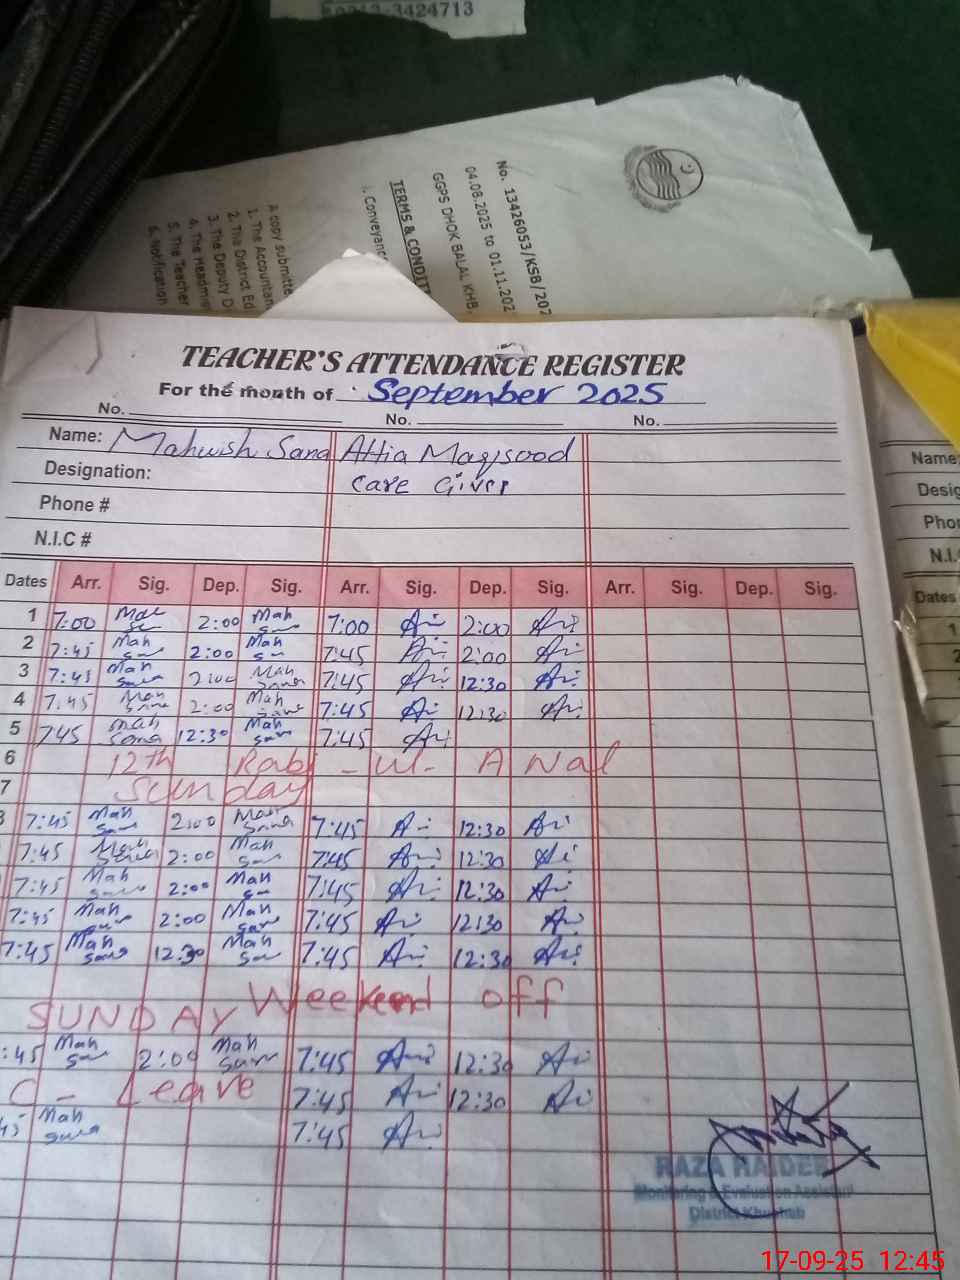 0313-3424713
No. 13426053/KSB/202
04.08.2025 to 01.11.202
GGPS DHOK BALAL KHB.
TERMS & CONDIT
i. Conveyanc
A copy submitte
1. The Accountan
2. The District Ed
3. The Deputy D
4. The Headmis
5. The Teacher
6. Notification
TEACHER'S ATTENDANCE REGISTER
For the month of September 2025
No. No. No.
Name: Mahwish Sana Attia Maqsood
Designation: Care Giver
Phone #
N.I.C #
Dates Arr. Sig. Dep. Sig. Arr. Sig. Dep. Sig. Arr. Sig. Dep. Sig.
1 7:00 2:00 Mah 7:00 2:00
2 7:45 Mah 2:00 Mah 7:45 2:00
3 7:45 Mah 2:00 Mah Sana 7:45 12:30
4 7:45 Mah Sana 2:00 Mah 7:45 12:30
5 7:45 Mah Sana 12:30 Mah San 7:45
6 12th Rabi-ul-Awal
7 Sunday
8 7:45 Mah 2:00 Mah Sana 7:45 12:30
7:45 Mah Sana 2:00 Mah 7:45 12:30
7:45 Mah 2:00 Mah 7:45 12:30
7:45 Mah 2:00 Mah 7:45 12:30
7:45 Mah 12:30 Mah 7:45 12:30
Weekend off
SUNDAY
:45 Mah 2:00 Mah 7:45 12:30
C-Leave 7:45 12:30
45 Mah 7:45
RAZA HAIDER
Monitoring & Evaluation Assistant
District Khushab
Name:
Desig
Phon
N.I.
Dates
1
2
17-09-25 12:45